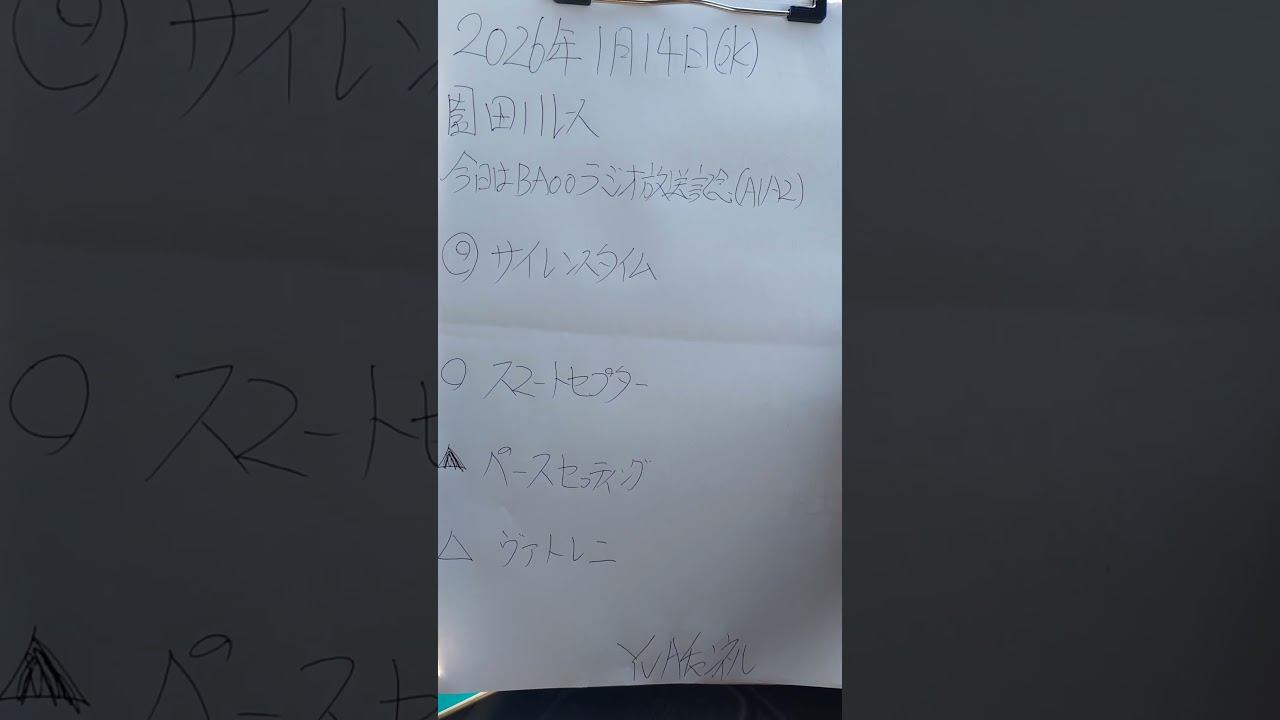 2026年1月14日(水)
園田11レース
今日はBAOOラジオ放送記念(A1A2)
◎ サイレンスタイム
○ スマートセプター
▲ ペースセッティング
△ ヴァトレニ